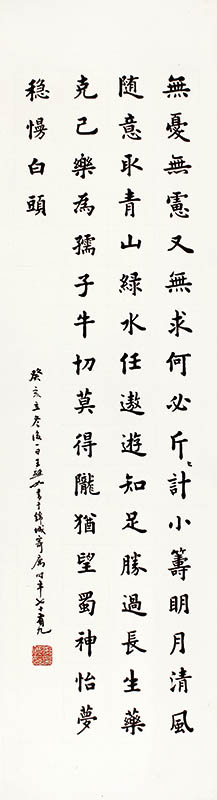 無憂無憲又無求何必斤〻計小籌明月清風
随意取青山綠水任遨遊知足勝過長生藥
克己樂為孺子牛切莫得隴猶望蜀神怡夢
稳慢白頭
癸亥立冬後一日王書于錦城寄廬时年七十有九